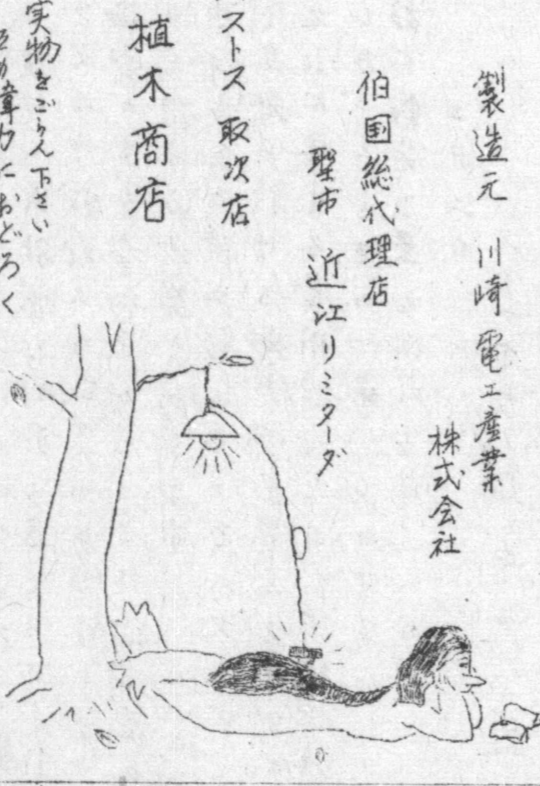 製造元 川崎電工産業
株式会社
伯国総代理店
聖市 近江リミターダ
ストス 取次店
植木商店
実物をごらん下さい
偉力におどろく